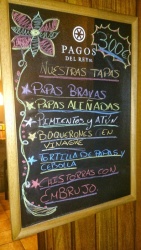 PAGOS
DEL REY
3,00€
NUESTRAS TAPAS
PAPAS BRAVAS
PAPAS ALEÑADAS
PIMIENTOS Y ATÚN
BOQUERONES EN
VINAGRE
TORTILLA DE PAPAS Y
CEBOLLA
CHISTORRAS CON
EMBRUJO